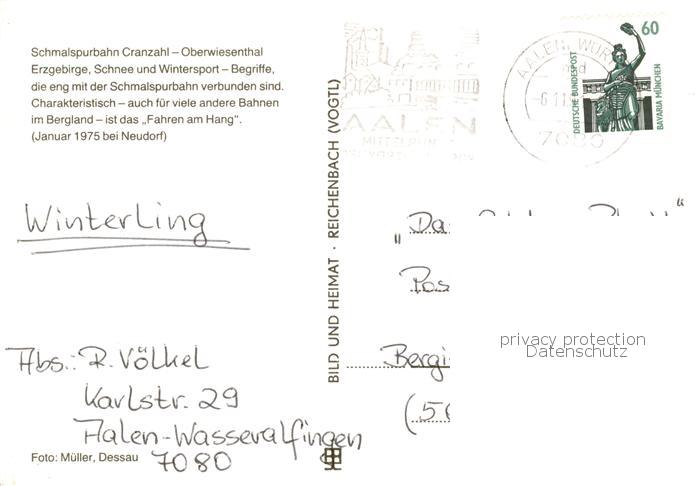 Schmalspurbahn Cranzahl – Oberwiesenthal
Erzgebirge, Schnee und Wintersport – Begriffe,
die eng mit der Schmalspurbahn verbunden sind.
Charakteristisch – auch für viele andere Bahnen
im Bergland – ist das „Fahren am Hang“.
(Januar 1975 bei Neudorf)
Winterling
Abs.: R. Völkel
Karlstr. 29
Aalen-Wasseralfingen
7080
Foto: Müller, Dessau
BILD UND HEIMAT · REICHENBACH (VOGTL)
AALEN
MITTELPUNKT
AALEN, WÜRTT
7080
60
DEUTSCHE BUNDESPOST
BAVARIA MÜNCHEN
„Da
Pos
Bergi
(50
privacy protection
Datenschutz